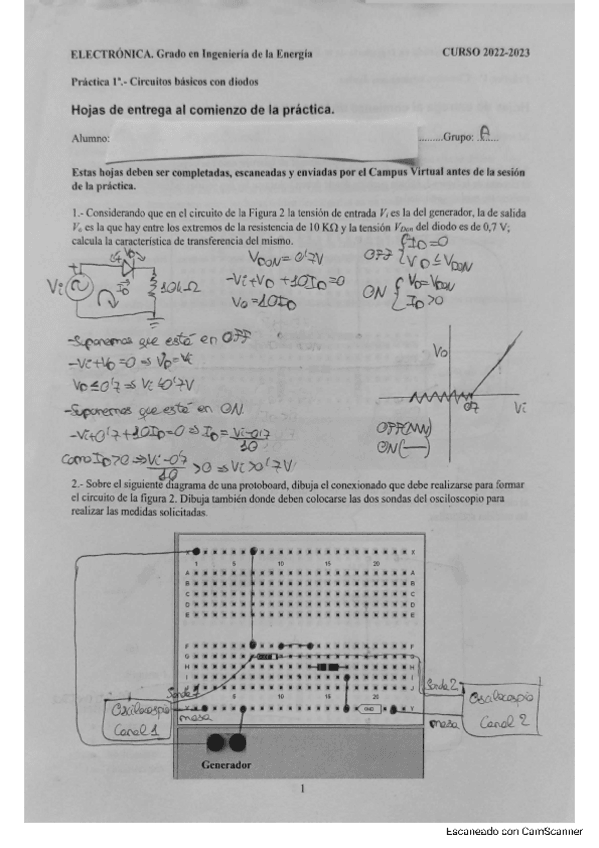 ELECTRÓNICA. Grado en Ingeniería de la Energía CURSO 2022-2023
Práctica 1ª.- Circuitos básicos con diodos
Hojas de entrega al comienzo de la práctica.
Alumno: ..........Grupo: A
Estas hojas deben ser completadas, escaneadas y enviadas por el Campus Virtual antes de la sesión
de la práctica.
1.- Considerando que en el circuito de la Figura 2 la tensión de entrada Vi es la del generador, la de salida
Vo es la que hay entre los extremos de la resistencia de 10 KΩ y la tensión VDon del diodo es de 0,7 V;
calcula la característica de transferencia del mismo.
VDON = 0'7V
-Vi+VD+10ID=0
Vo=10ID
OFF { ID=0
VD≤VDON
ON { VD=VDON
ID>0
Vi
ID
10kΩ
-Suponemos que está en OFF
-Vi+VD=0 ⇒ VD=Vi
VD≤0'7 ⇒ Vi≤0'7V
-Suponemos que esté en ON
-Vi+0'7+10ID=0 ⇒ ID= Vi-0'7
10
Como ID>0 ⇒ Vi-0'7 >0 ⇒ Vi>0'7V
10
Vo
0'7
Vi
OFF
ON
2.- Sobre el siguiente diagrama de una protoboard, dibuja el conexionado que debe realizarse para formar
el circuito de la figura 2. Dibuja también donde deben colocarse las dos sondas del osciloscopio para
realizar las medidas solicitadas.
X X
1 5 10 15 20
A A
B B
C C
D D
E E
F F
G G
H H
I I
J J
5 10 15 20
Y Y
Sonda 1
Osciloscopio
Canal 1
masa
Sonda 2
Osciloscopio
Canal 2
masa
GND
Generador
1
Escaneado con CamScanner